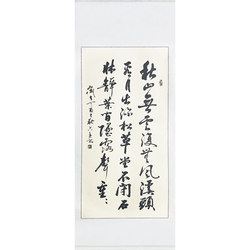 秋山無雲復無風溪頭
看月出深松草堂不閉石
床靜葉間墜露聲重〻